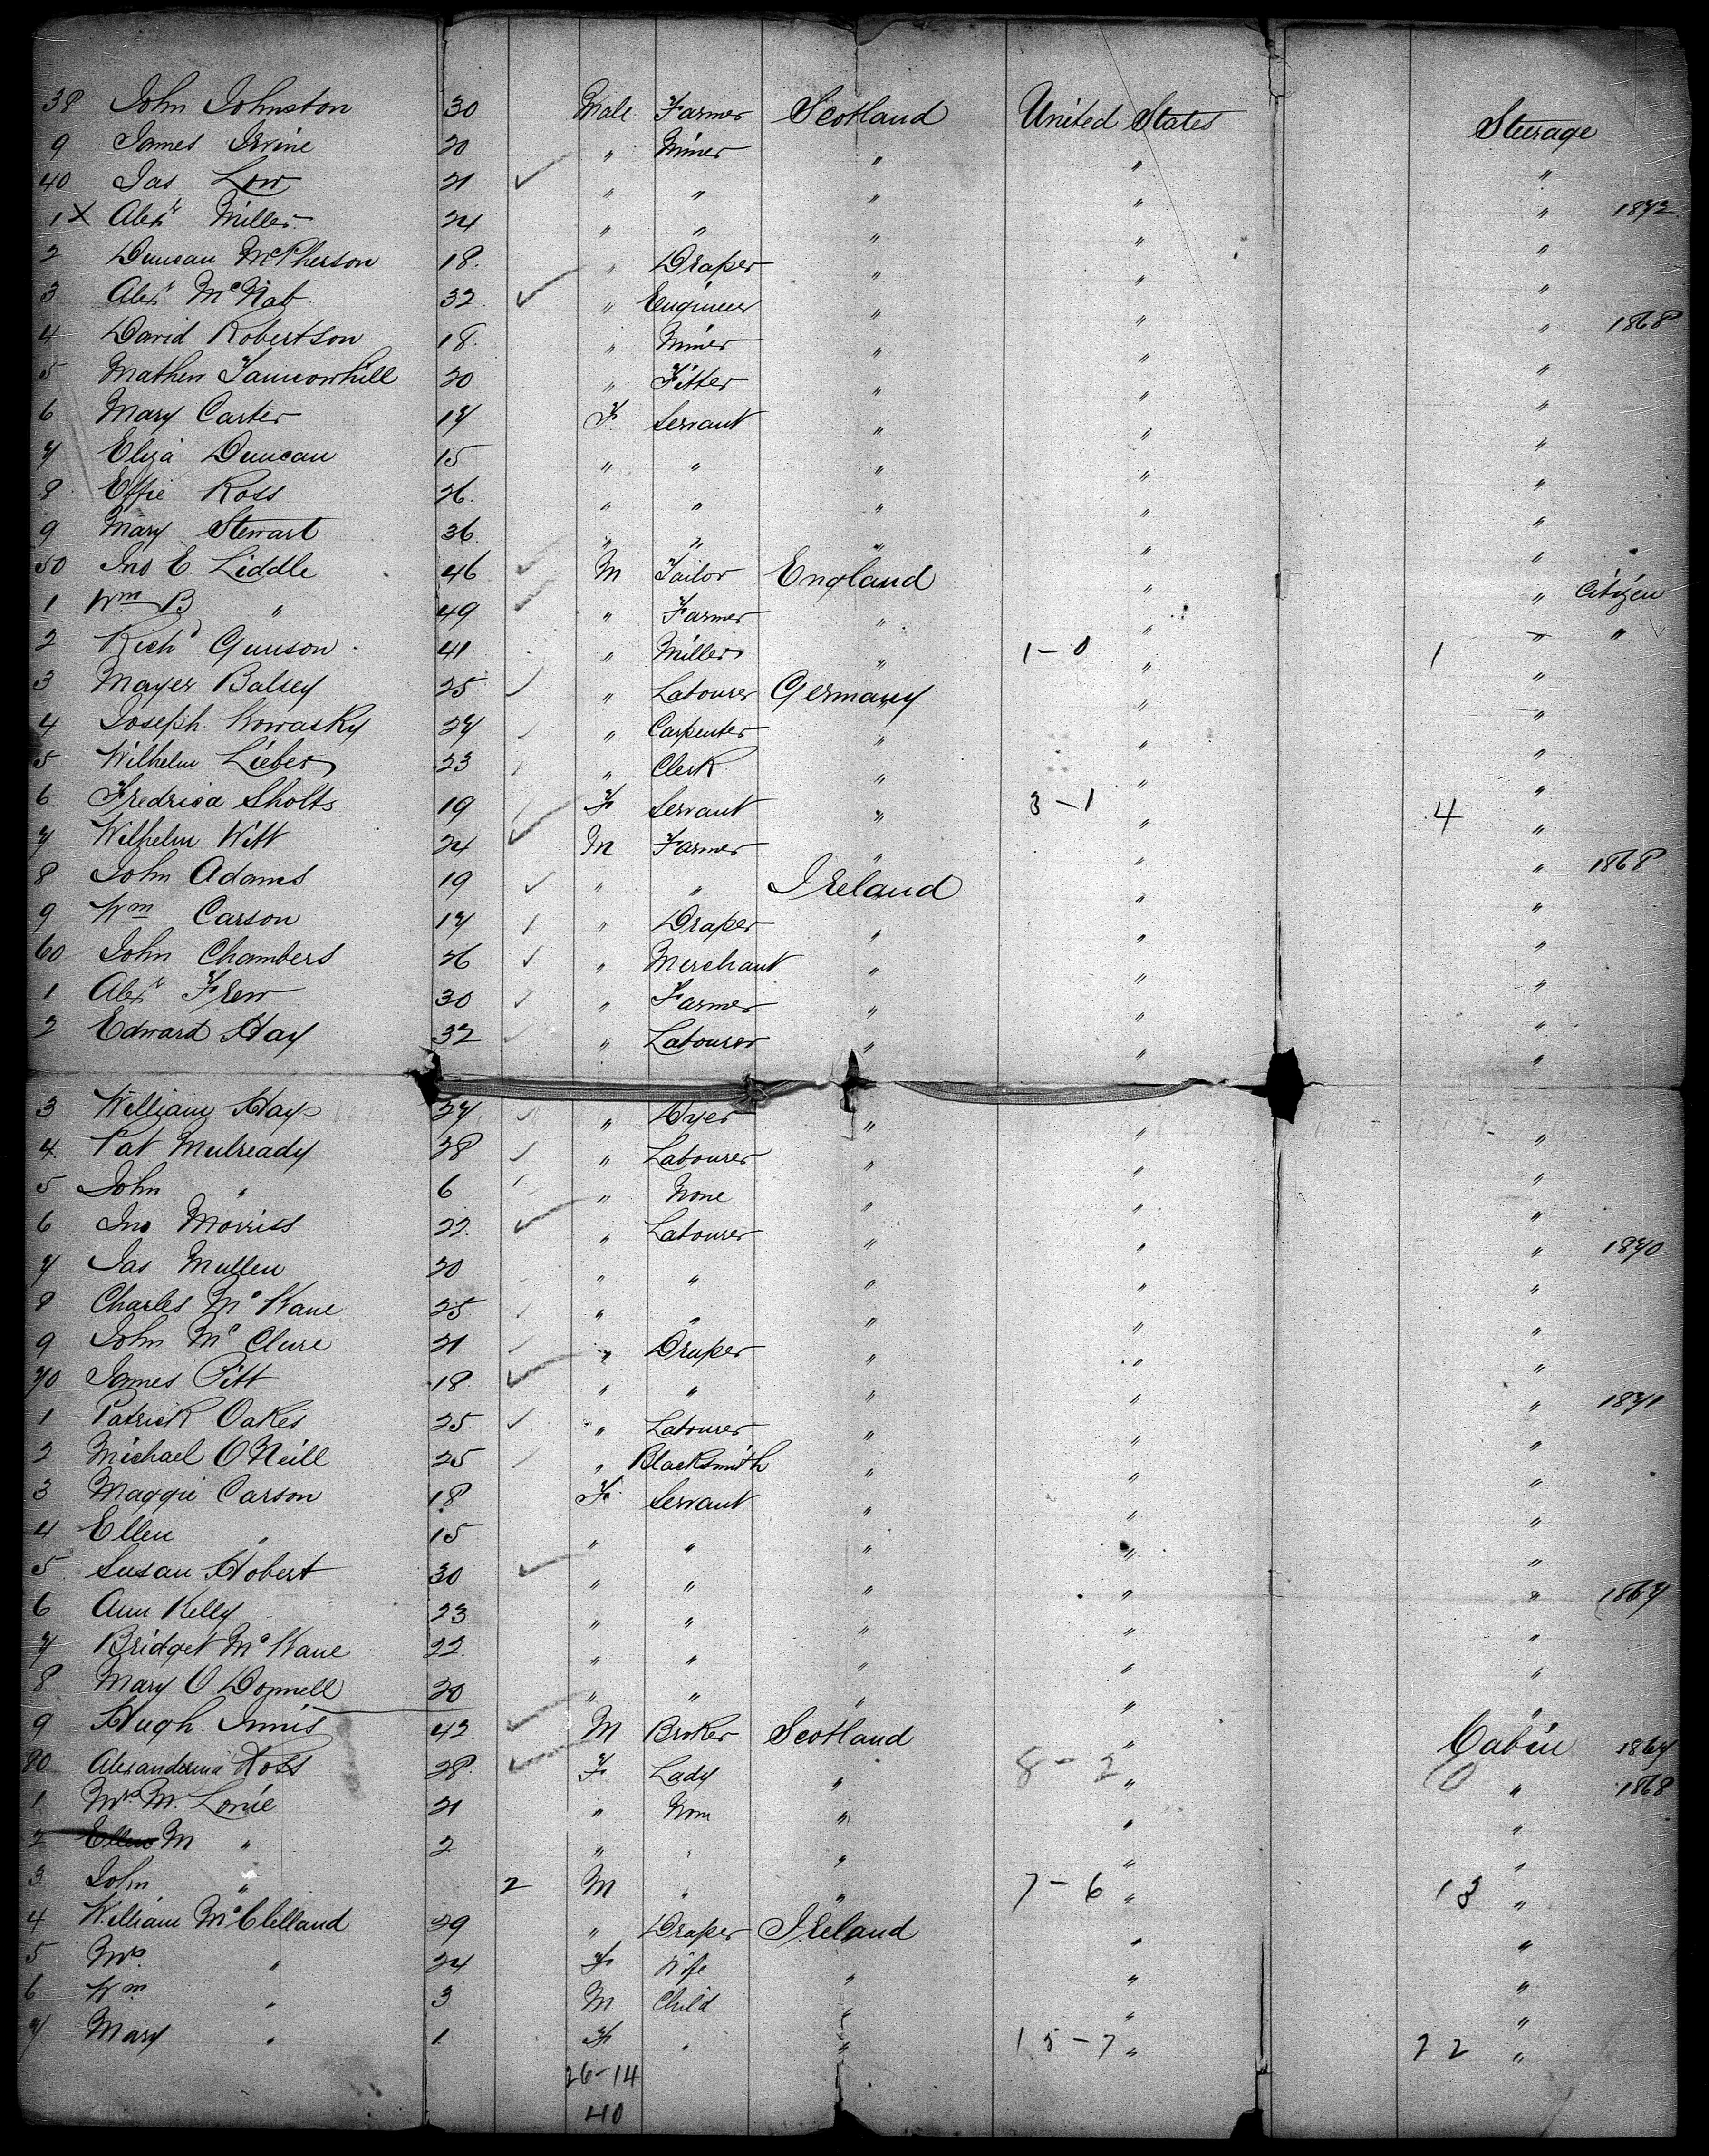 38 John Johnston 30 Male Farmer Scotland United States Steerage
9 James Irvine 20 " Miner " " "
40 Jas Low 21 ✓ " " " " "
1 X Alexr Miller 24 " " " " " 1872
2 Duncan McPherson 18. " Draper " " "
3 Alexr McNab 32 ✓ " Engineer " " "
4 David Robertson 18. " Miner " " " 1868
5 Mathew 20 " Fitter " " "
6 Mary Carter 17 F. Servant " " "
7 Eliza Duncan 15 " " " " "
8 Effie Ross 26. " " " " "
9 Mary Stewart 36. " " " " "
50 Jno E. Liddle 46 ✓ M Tailor England " "
1 Wm B " 49 ✓ " Farmer " " " Citizen
2 Richd Gunson 41 " Miller " 1-0 " 1 " "
3 Mayer Balsey 25 ✓ " Labourer Germany " "
4 Joseph Kowasky 27 ✓ " Carpenter " " "
5 Wilhelm Lieber 23 ✓ " Clerk " " "
6 Fredrica Sholts 19 ✓ F Servant " 3-1 " 4 "
7 Wilhelm Witt 24 ✓ M Farmer " " "
8 John Adams 19 ✓ " " Ireland " " 1868
9 Wm Carson 17 ✓ " Draper " " "
60 John Chambers 26 ✓ " Merchant " " "
1 Alexr Frew 30 ✓ " Farmer " " "
2 Edward Hay 32 ✓ " Labourer " " "
3 William Hay 27 ✓ " Dyer " " "
4. Pat Mulready 28 ✓ " Labourer " " "
5 John " 6 ✓ " None " " "
6 Jno Morriss 22. ✓ " Labourer " " "
7 Jas Mullen 20 " " " " " 1870
8 Charles McKane 25 ✓ " " " " "
9 John McClure 21 ✓ " Draper " " "
70 James Pitt 18. ✓ " " " " "
1 Patrick Oakes 25 ✓ " Labourer " " " 1871
2 Michael ONeill 25 ✓ " Blacksmith " " "
3 Maggie Carson 18 F. Servant " " "
4 Ellen " 15 " " " " "
5 Susan Hobert 30 ✓ " " " " "
6 Ann Kelly 23 " " " " " 1867
7 Bridget McKane 22. " " " " "
8 Mary ODonnell 20 " " " " "
9 Hugh. Innis 42. ✓ M Broker Scotland " Cabin 1867
80 Alexanderina Ross 28. ✓ F Lady " 8-2 " " 1868
1 Mrs M. Lorie 21 " None " " "
2 Ellen M " 2 " " " " "
3 John " 2 M " " 7-6 " 13 "
4 William McClelland 29 " Draper Ireland " "
5 Mrs. " 24 F Wife " " "
6 Wm " 3 M Child " " "
7 Mary " 1 F " " 15-7 " 22 "
26-14
40